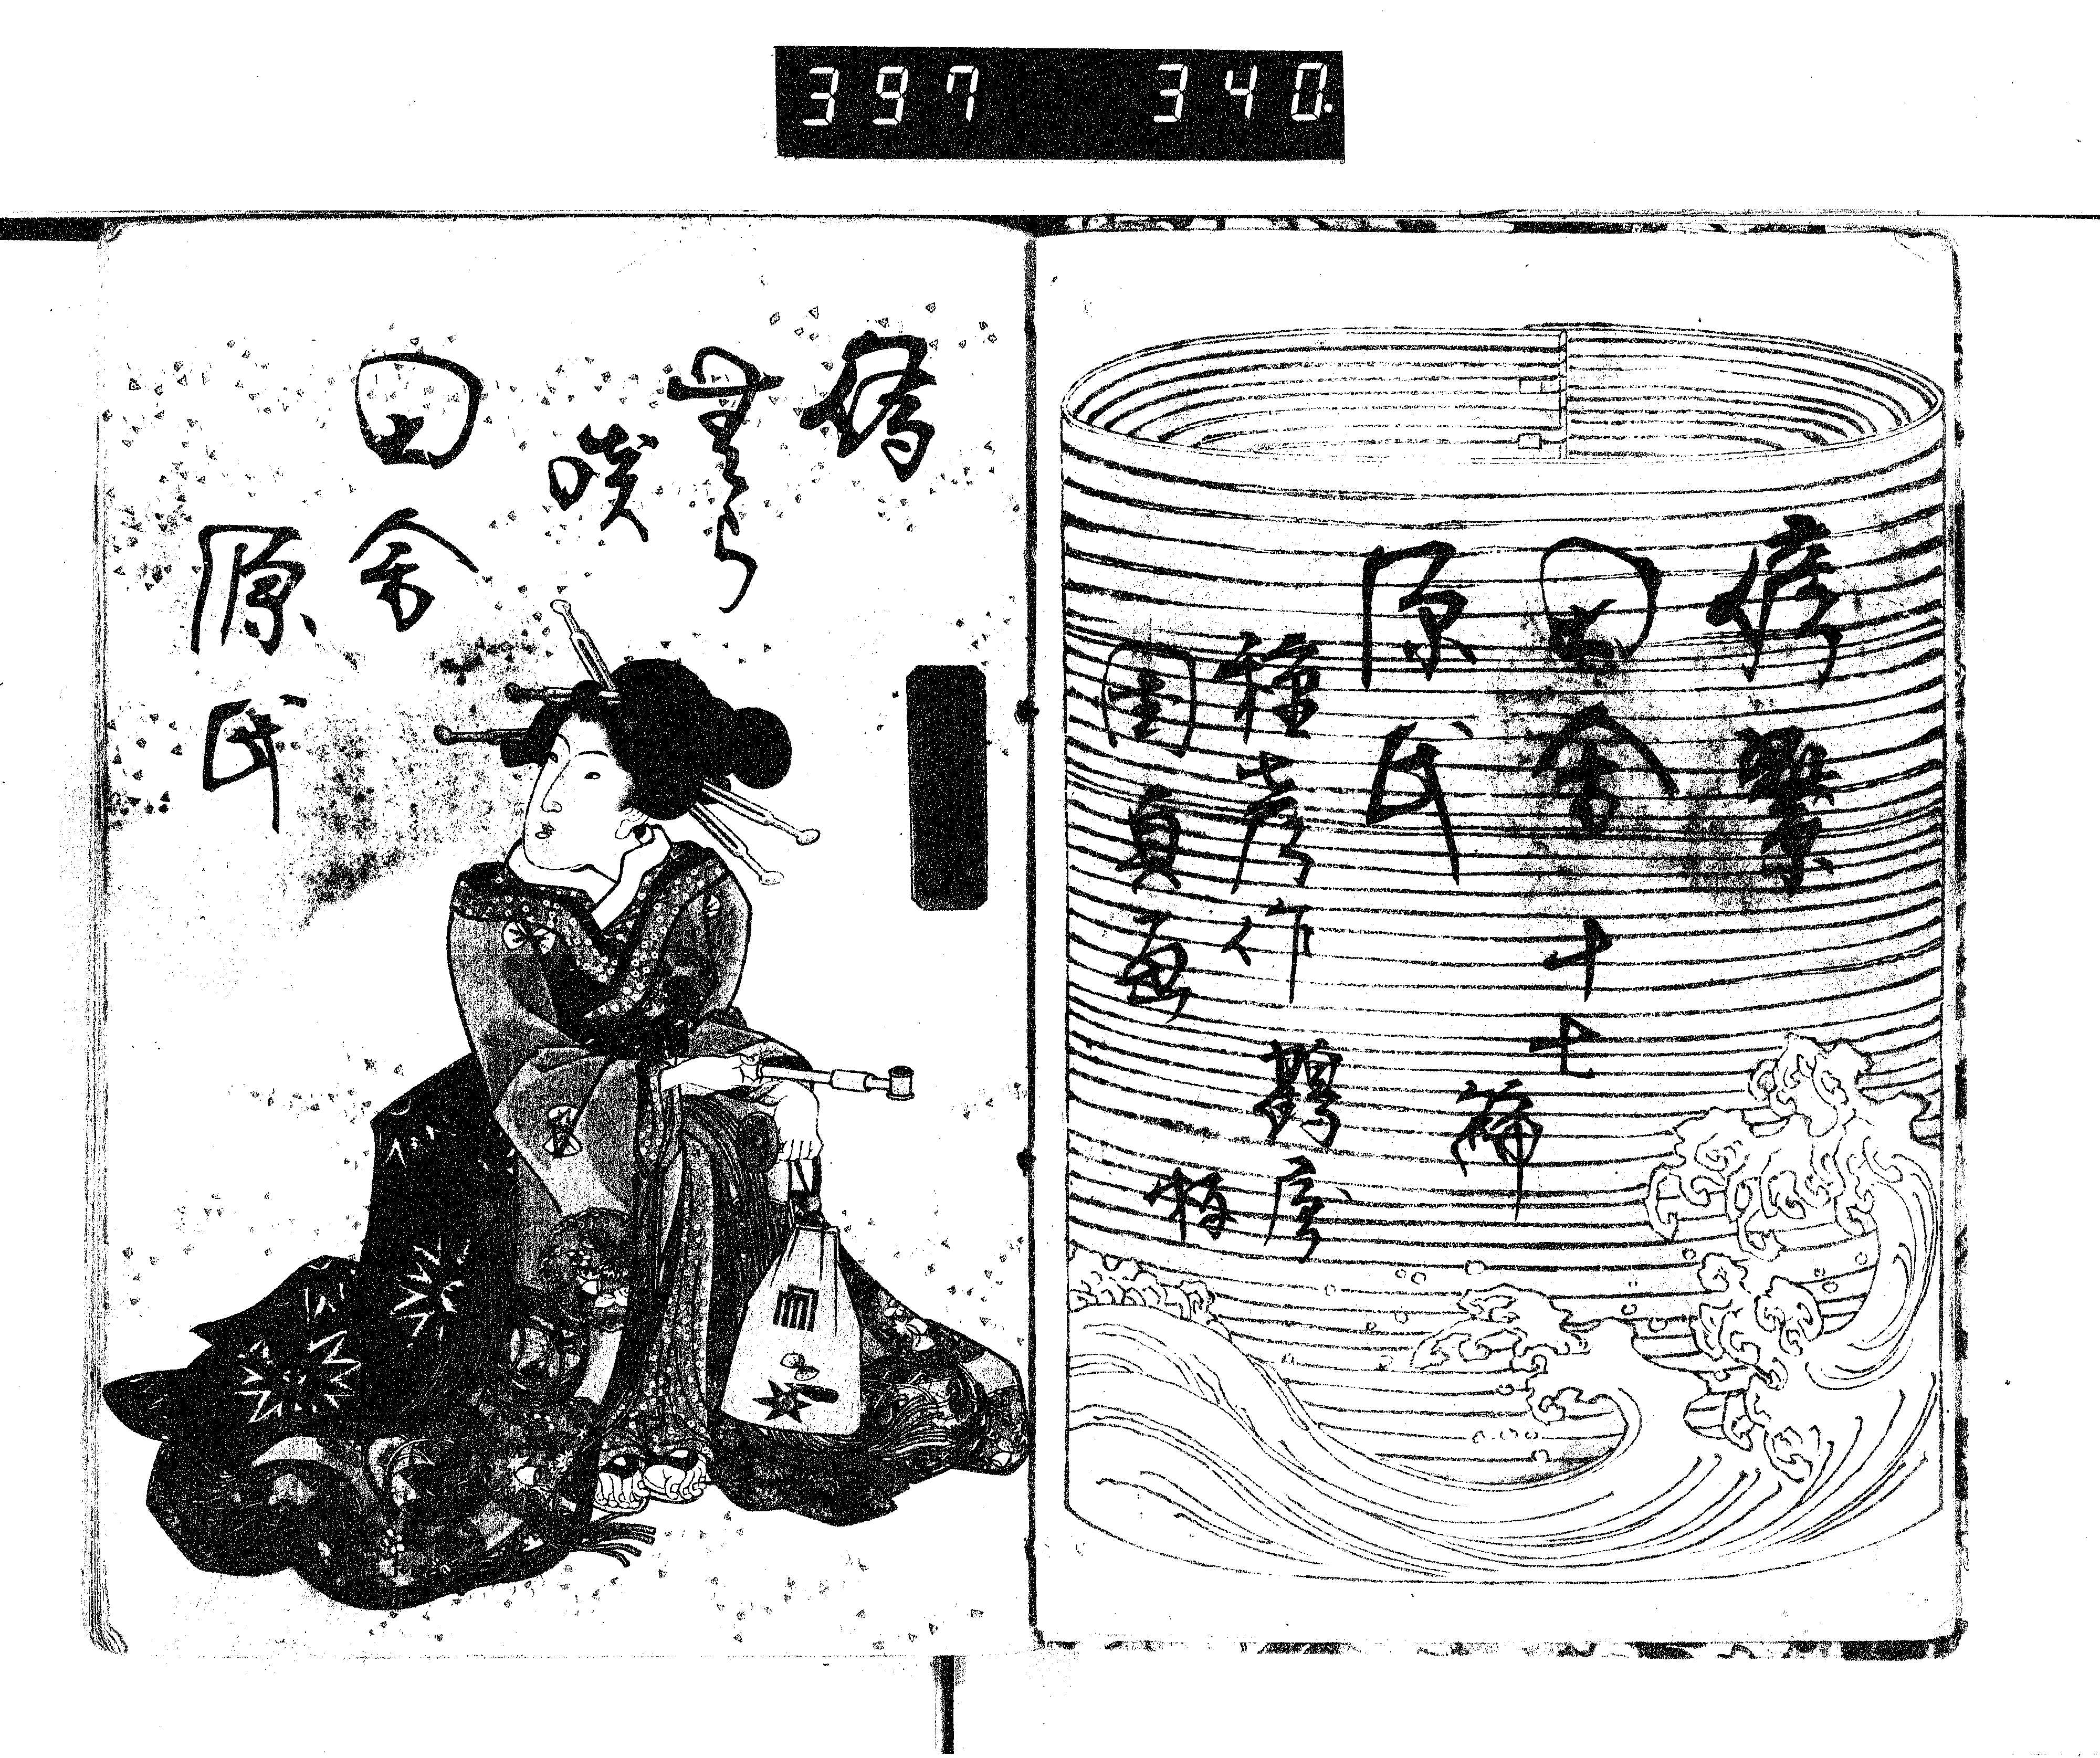 397 340
偐紫
田舎
源氏
十七
篇
種彦作
国貞画
鶴屋
梓
偐
無ら
咲
田舎
源氏